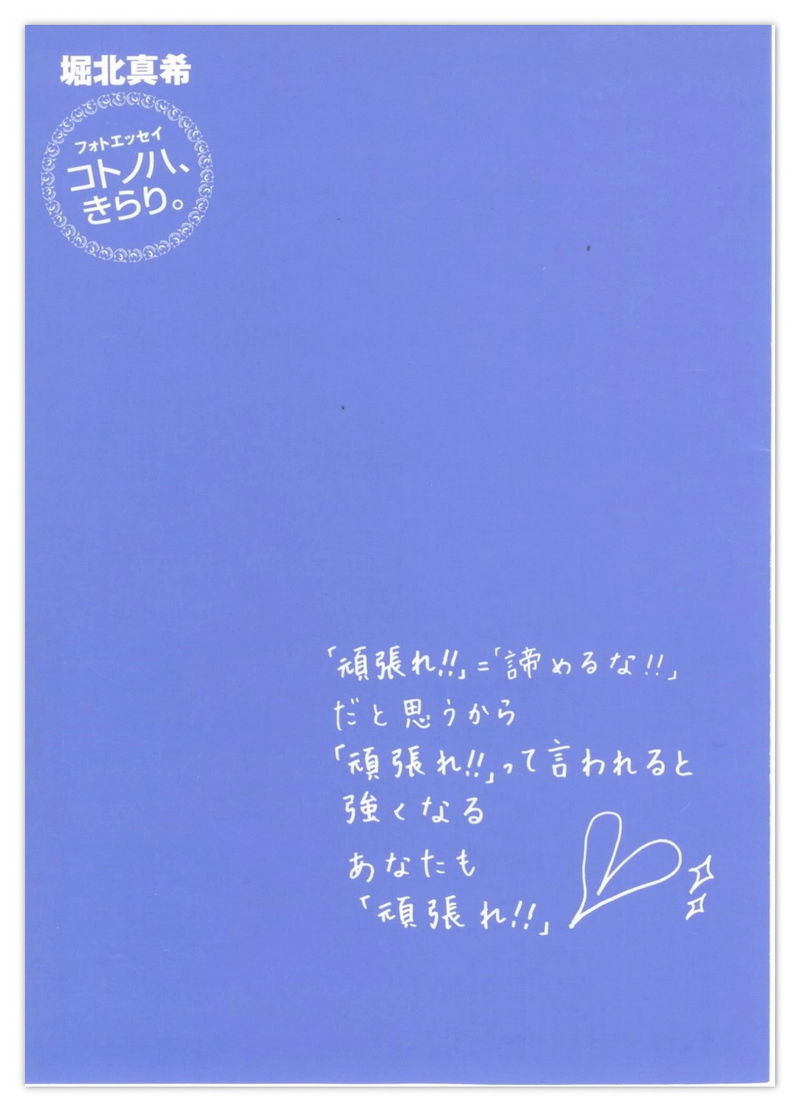 堀北真希
フォトエッセイ
コトノハ、
きらり。
「頑張れ!!」=「諦めるな!!」
だと思うから
「頑張れ!!」って言われると
強くなる
あなたも
「頑張れ!!」